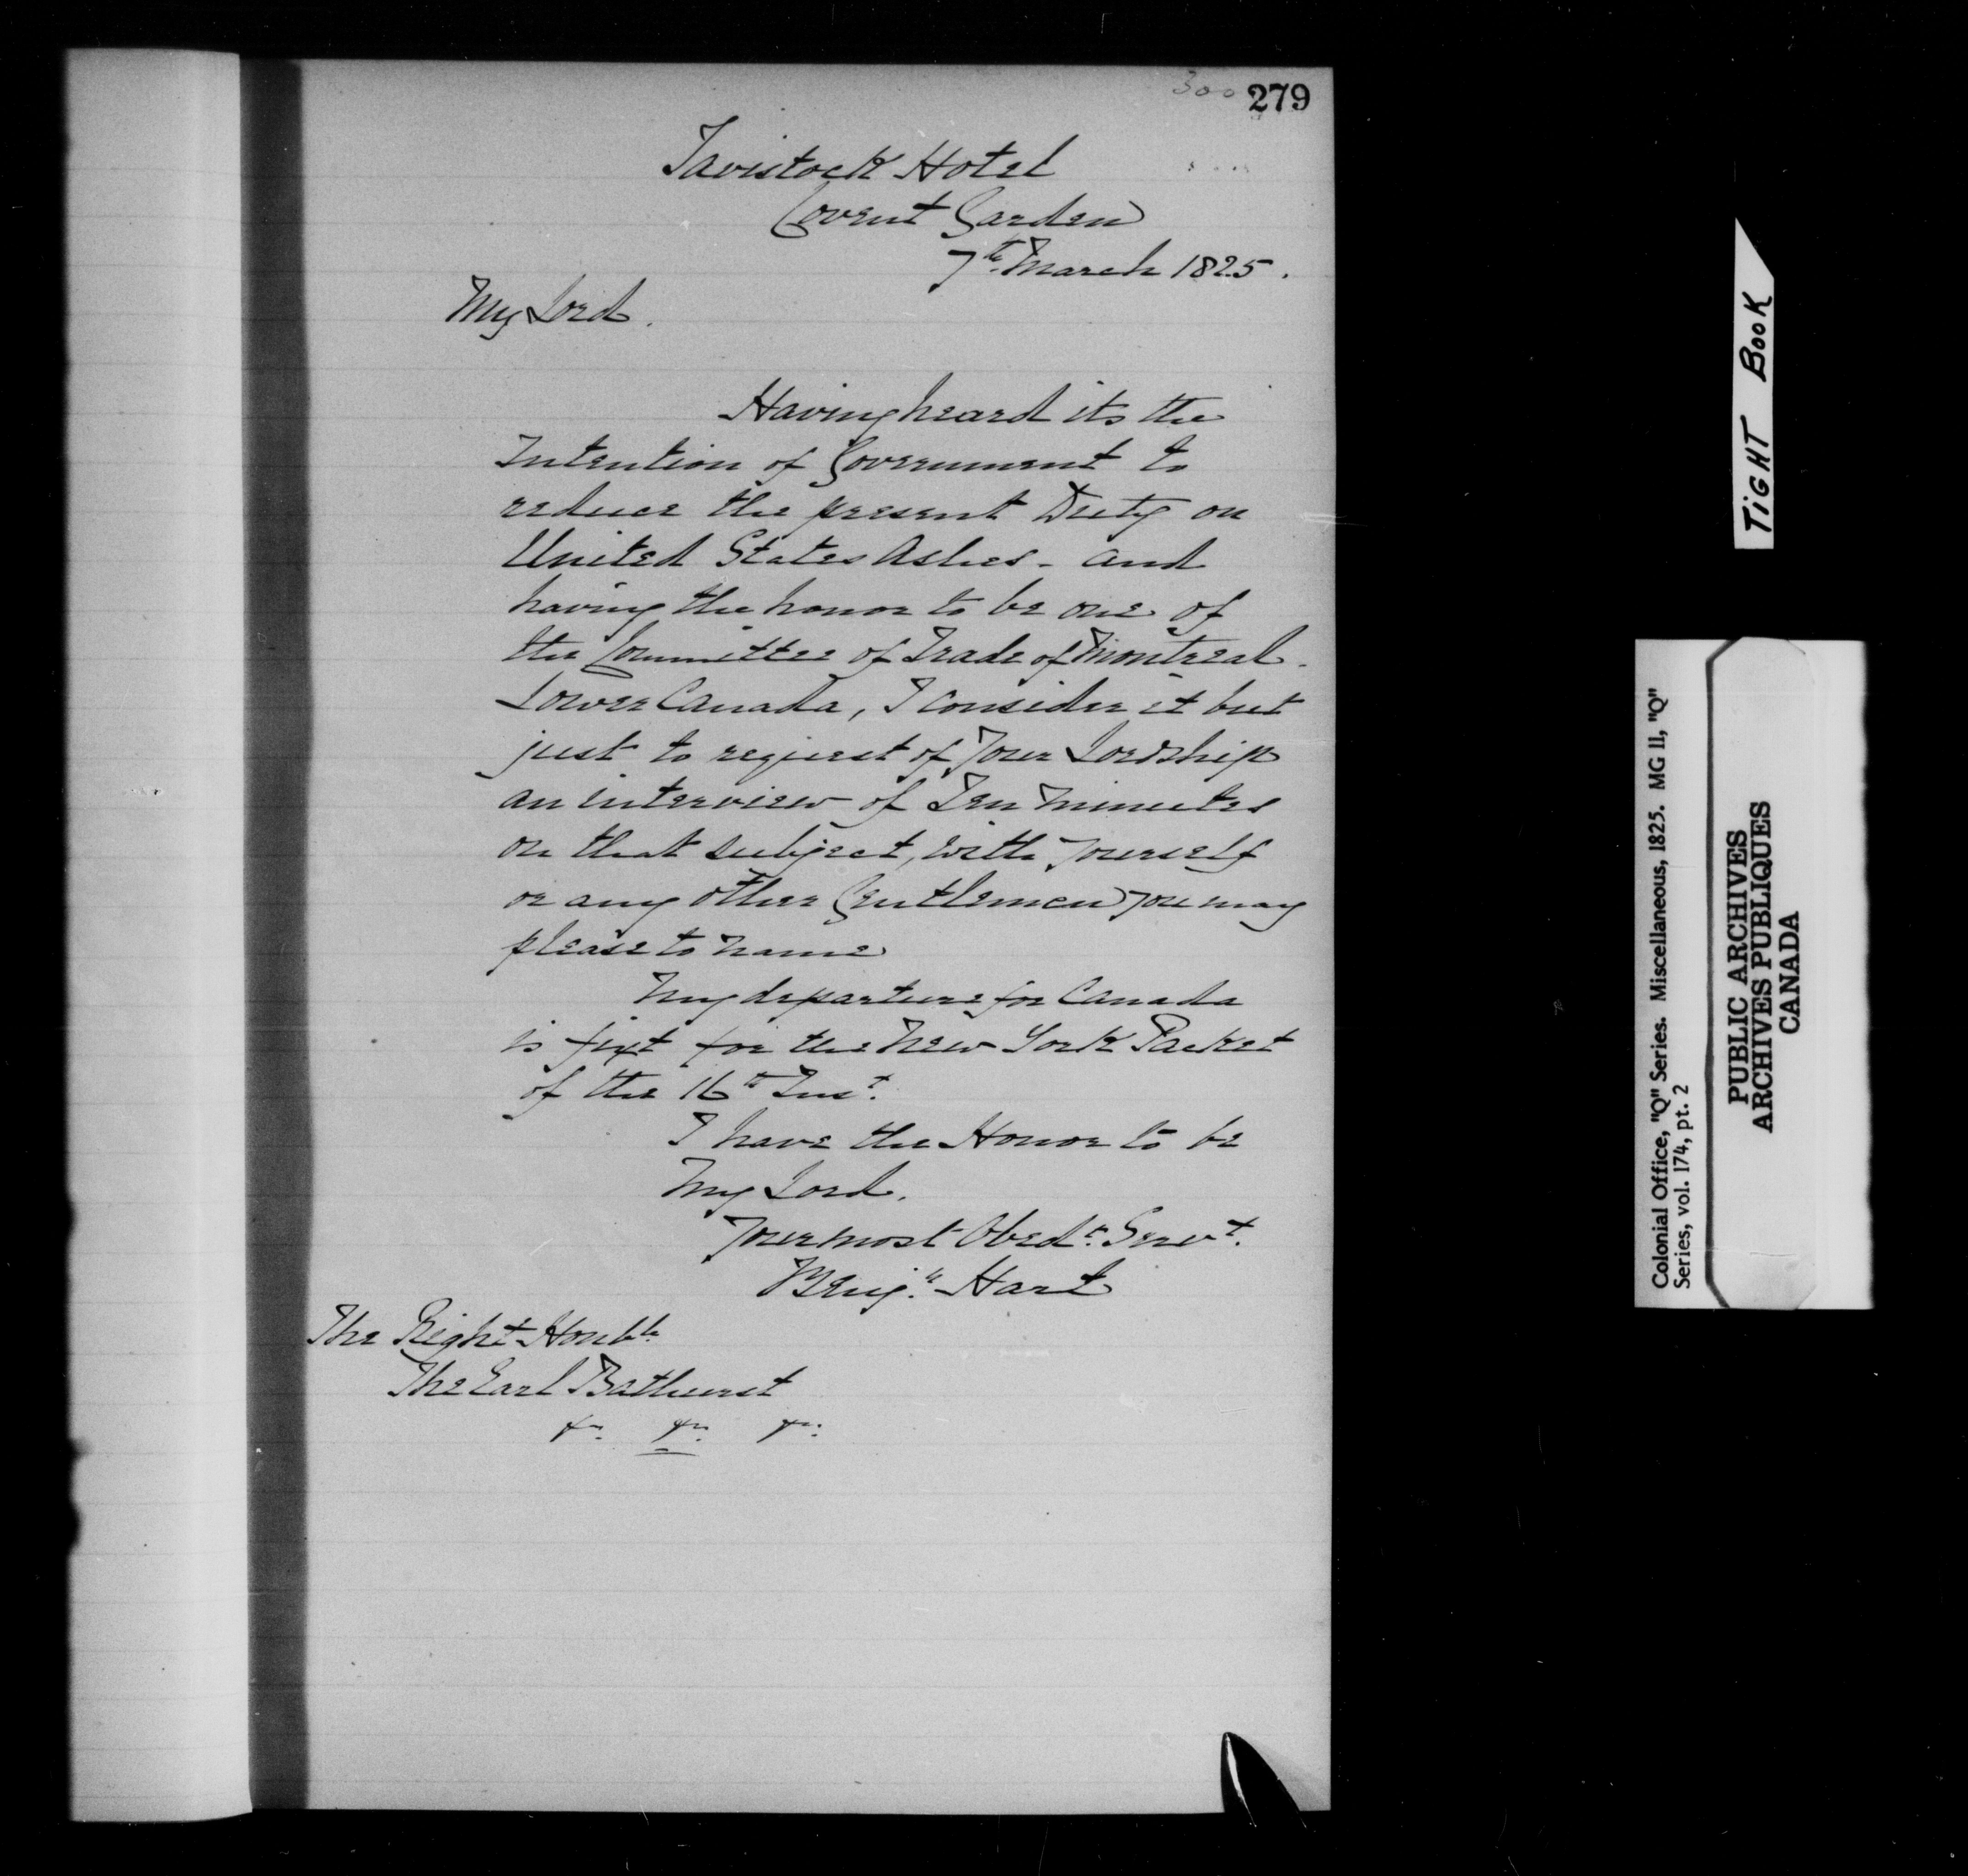 300 279
Tavistock Hotel
Covent Garden
7th March 1825.
My Lord.
Having heard its the
Intention of Government to
reduce the present Duty on
United States Ashes - and
having the honor to be one of
the Committee of Trade of Montreal.
Lower Canada, I consider it but
just to request of Your Lordship
an interview of Ten Minutes
on that subject, with yourself
or any other Gentlemen you may
please to name
My departure for Canada
is fixt for the New York Packet
of the 16th Inst.
I have the Honor to be
My Lord.
Your most Obedt. Servt.
Benjn. Hart
The Right Honble
The Earl Bathurst
&c. &c. &c.
TIGHT BOOK
Colonial Office, "Q" Series. Miscellaneous, 1825. MG 11, "Q"
Series, vol. 174, pt. 2
PUBLIC ARCHIVES
ARCHIVES PUBLIQUES
CANADA